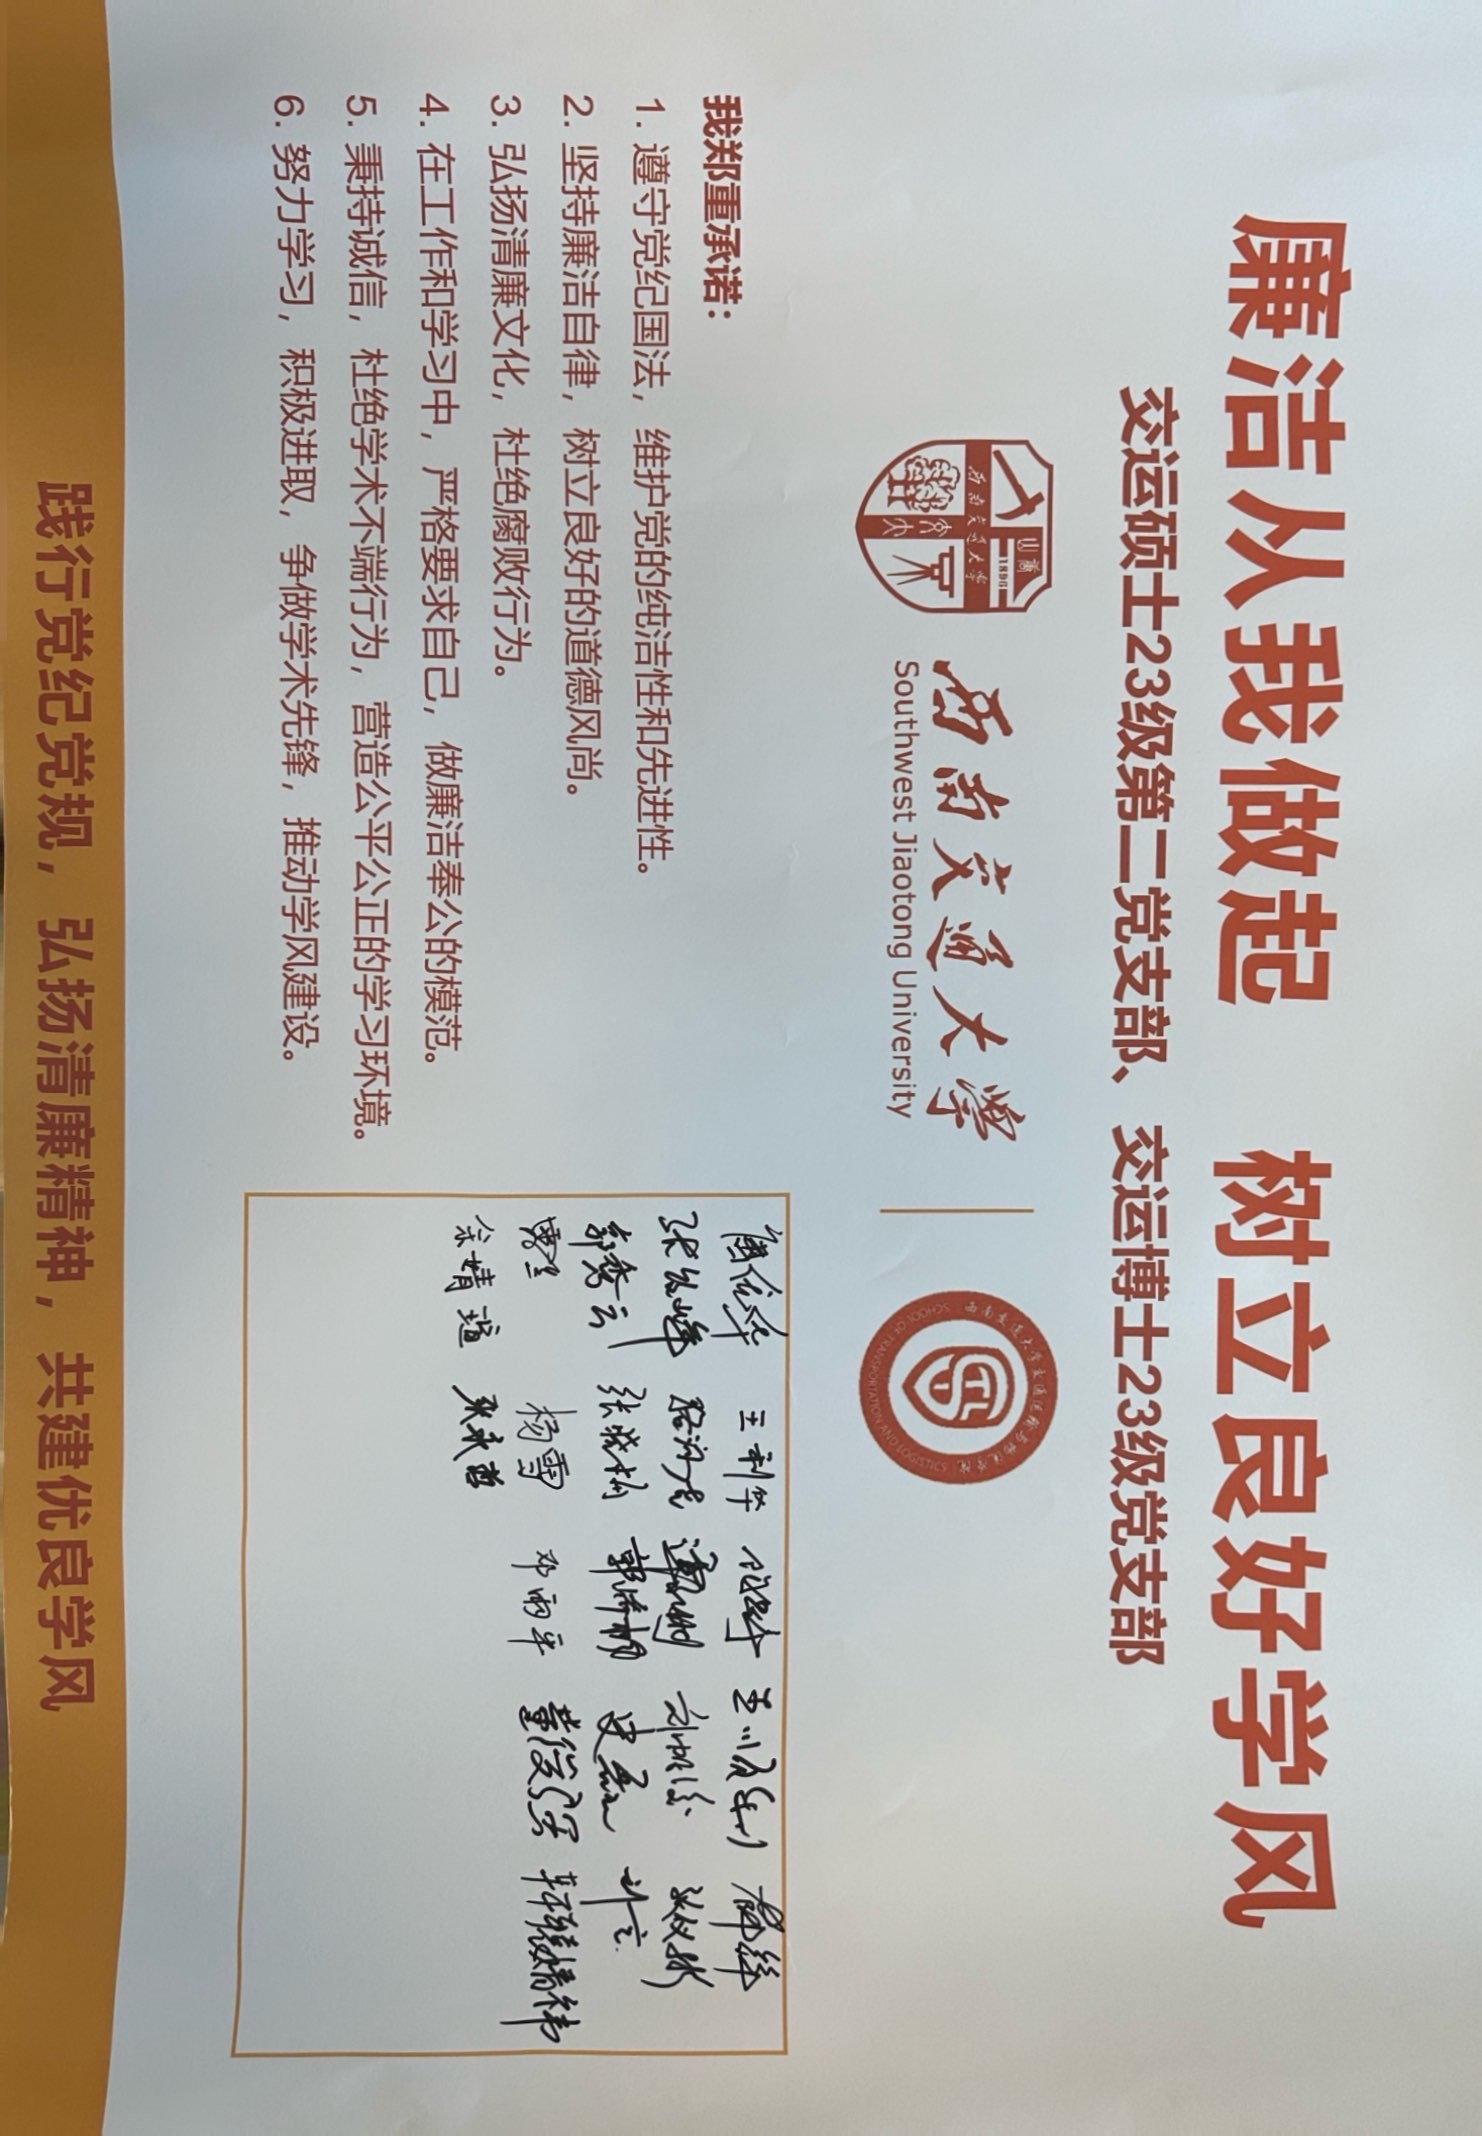 廉洁从我做起 树立良好学风
交运硕士23级第二党支部、交运博士23级党支部
西南交通大学
1896
西南交通大学
Southwest Jiaotong University
西南交通大学交通运输与物流学院
SCHOOL OF TRANSPORTATION AND LOGISTICS
我郑重承诺：
1. 遵守党纪国法，维护党的纯洁性和先进性。
2. 坚持廉洁自律，树立良好的道德风尚。
3. 弘扬清廉文化，杜绝腐败行为。
4. 在工作和学习中，严格要求自己，做廉洁奉公的模范。
5. 秉持诚信，杜绝学术不端行为，营造公平公正的学习环境。
6. 努力学习，积极进取，争做学术先锋，推动学风建设。
王利华
郭秀云 张晓楠
杨雪 邓雨平 董俊宏
余婧 张永哲
践行党纪党规，弘扬清廉精神，共建优良学风